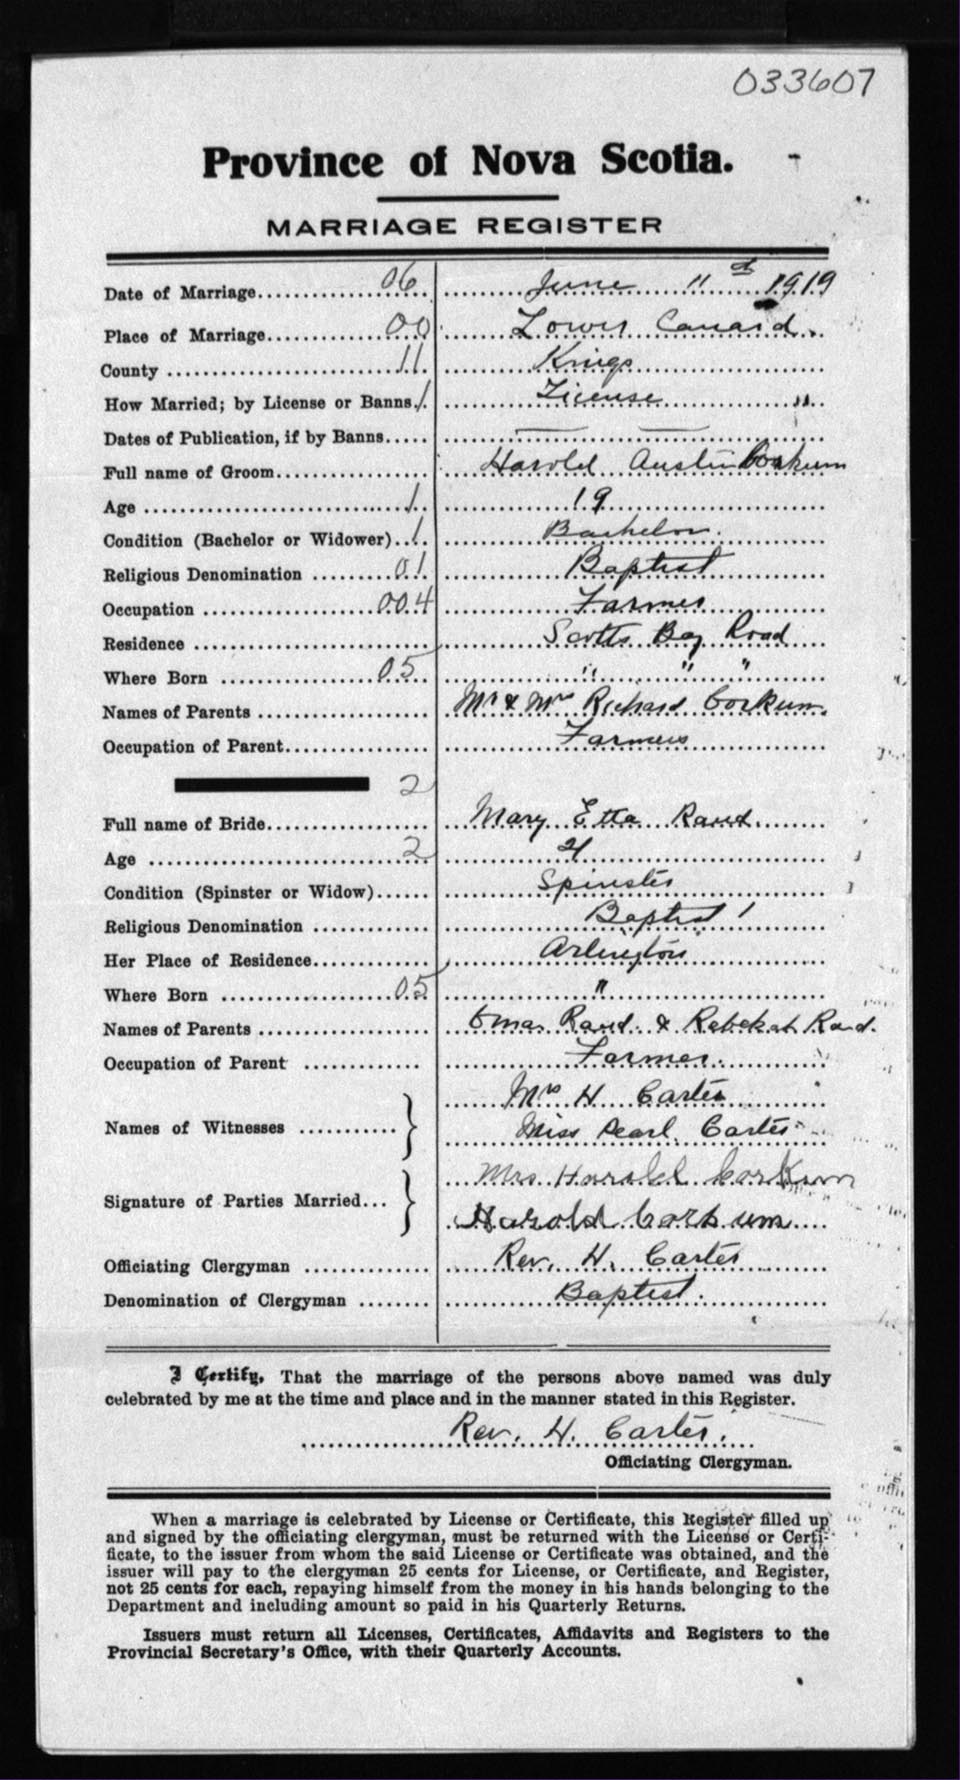 033607
Province of Nova Scotia.
MARRIAGE REGISTER
Date of Marriage 06 June 11th 1919
Place of Marriage 00 Lower Canard.
County 11 Kings
How Married; by License or Banns 1 License "
Dates of Publication, if by Banns — —
Full name of Groom Harold Austin Corkum
Age 1 19
Condition (Bachelor or Widower) 1 Bachelor.
Religious Denomination 01 Baptist
Occupation 004 Farmer
Residence Scotts Bay Road
Where Born 05 " " "
Names of Parents Mr & Mrs Richard Corkum.
Occupation of Parent Farmers
2
Full name of Bride Mary Etta Rand.
Age 2 21
Condition (Spinster or Widow) Spinster
Religious Denomination Baptist 1
Her Place of Residence Arlington
Where Born 05 "
Names of Parents Rand & Rebekah Rand.
Occupation of Parent Farmer.
Names of Witnesses } Mrs H Carter
Miss Pearl Carter
Signature of Parties Married... } Mrs Harold Corkum
Harold Corkum
Officiating Clergyman Rev. H. Carter
Denomination of Clergyman Baptist.
I Certify, That the marriage of the persons above named was duly
celebrated by me at the time and place and in the manner stated in this Register.
Rev. H. Carter.
Officiating Clergyman.
When a marriage is celebrated by License or Certificate, this Register filled up
and signed by the officiating clergyman, must be returned with the License or Certi-
ficate, to the issuer from whom the said License or Certificate was obtained, and the
issuer will pay to the clergyman 25 cents for License, or Certificate, and Register,
not 25 cents for each, repaying himself from the money in his hands belonging to the
Department and including amount so paid in his Quarterly Returns.
Issuers must return all Licenses, Certificates, Affidavits and Registers to the
Provincial Secretary's Office, with their Quarterly Accounts.